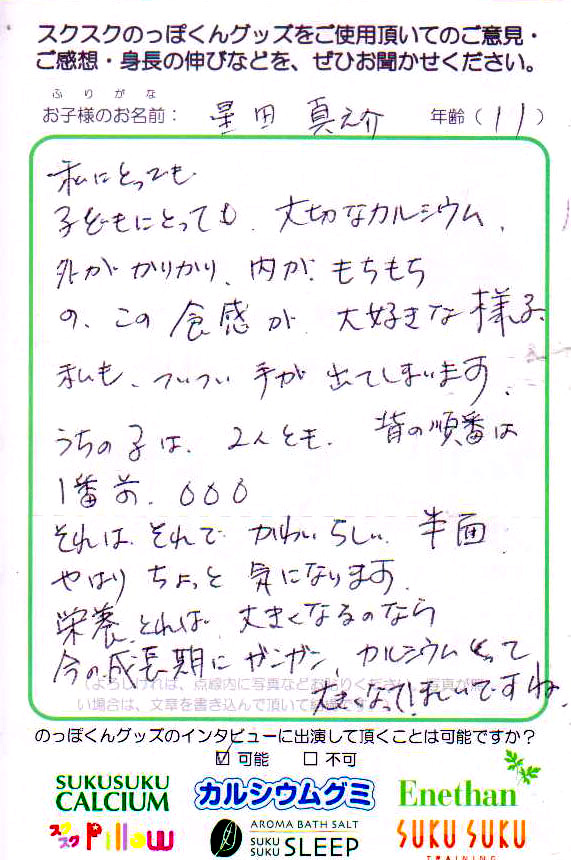 スクスクのっぽくんグッズをご使用頂いてのご意見・
ご感想・身長の伸びなどを、ぜひお聞かせください。
ふりがな
お子様のお名前： 星田 真之介 年齢（11）
私にとっても
子どもにとっても、大切なカルシウム、
外が かりかり、内が もちもち
の、この 食感が 大好きな様子、
私も、ついつい 手が 出てしまいます。
うちの子は、2人とも、背の順番は
1番前、
それは それで かわいらしい 半面
やはり ちょっと 気になります。
栄養とれば 大きくなるのなら
今の成長期に ガンガン、カルシウムとって
大きくなってほしいですね。
（よろしければ、点線内に写真などお貼りください。写真が無
い場合は、文章を書き込んで頂いて
のっぽくんグッズのインタビューに出演して頂くことは可能ですか？
☑ 可能 □ 不可
SUKUSUKU CALCIUM
カルシウムグミ
Enethan
スクスク Pillow
AROMA BATH SALT
SUKU SUKU SLEEP
SUKU SUKU
TRAINING